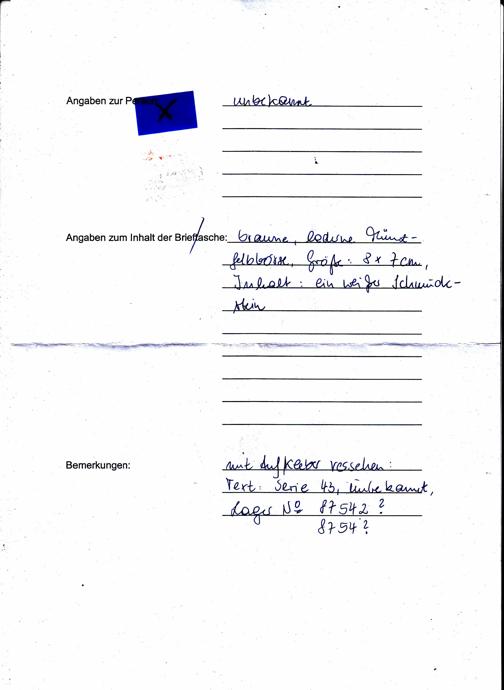 Angaben zur Person: unbekannt
Angaben zum Inhalt der Brieftasche: braune, lederne Münz-
geldbörse, Größe: 8 x 7cm,
Inhalt: ein weißer Schmuck-
stein
Bemerkungen: mit Aufkleber versehen:
Text: Serie 43, unbekannt,
Lager No 87542 ?
8754 ?